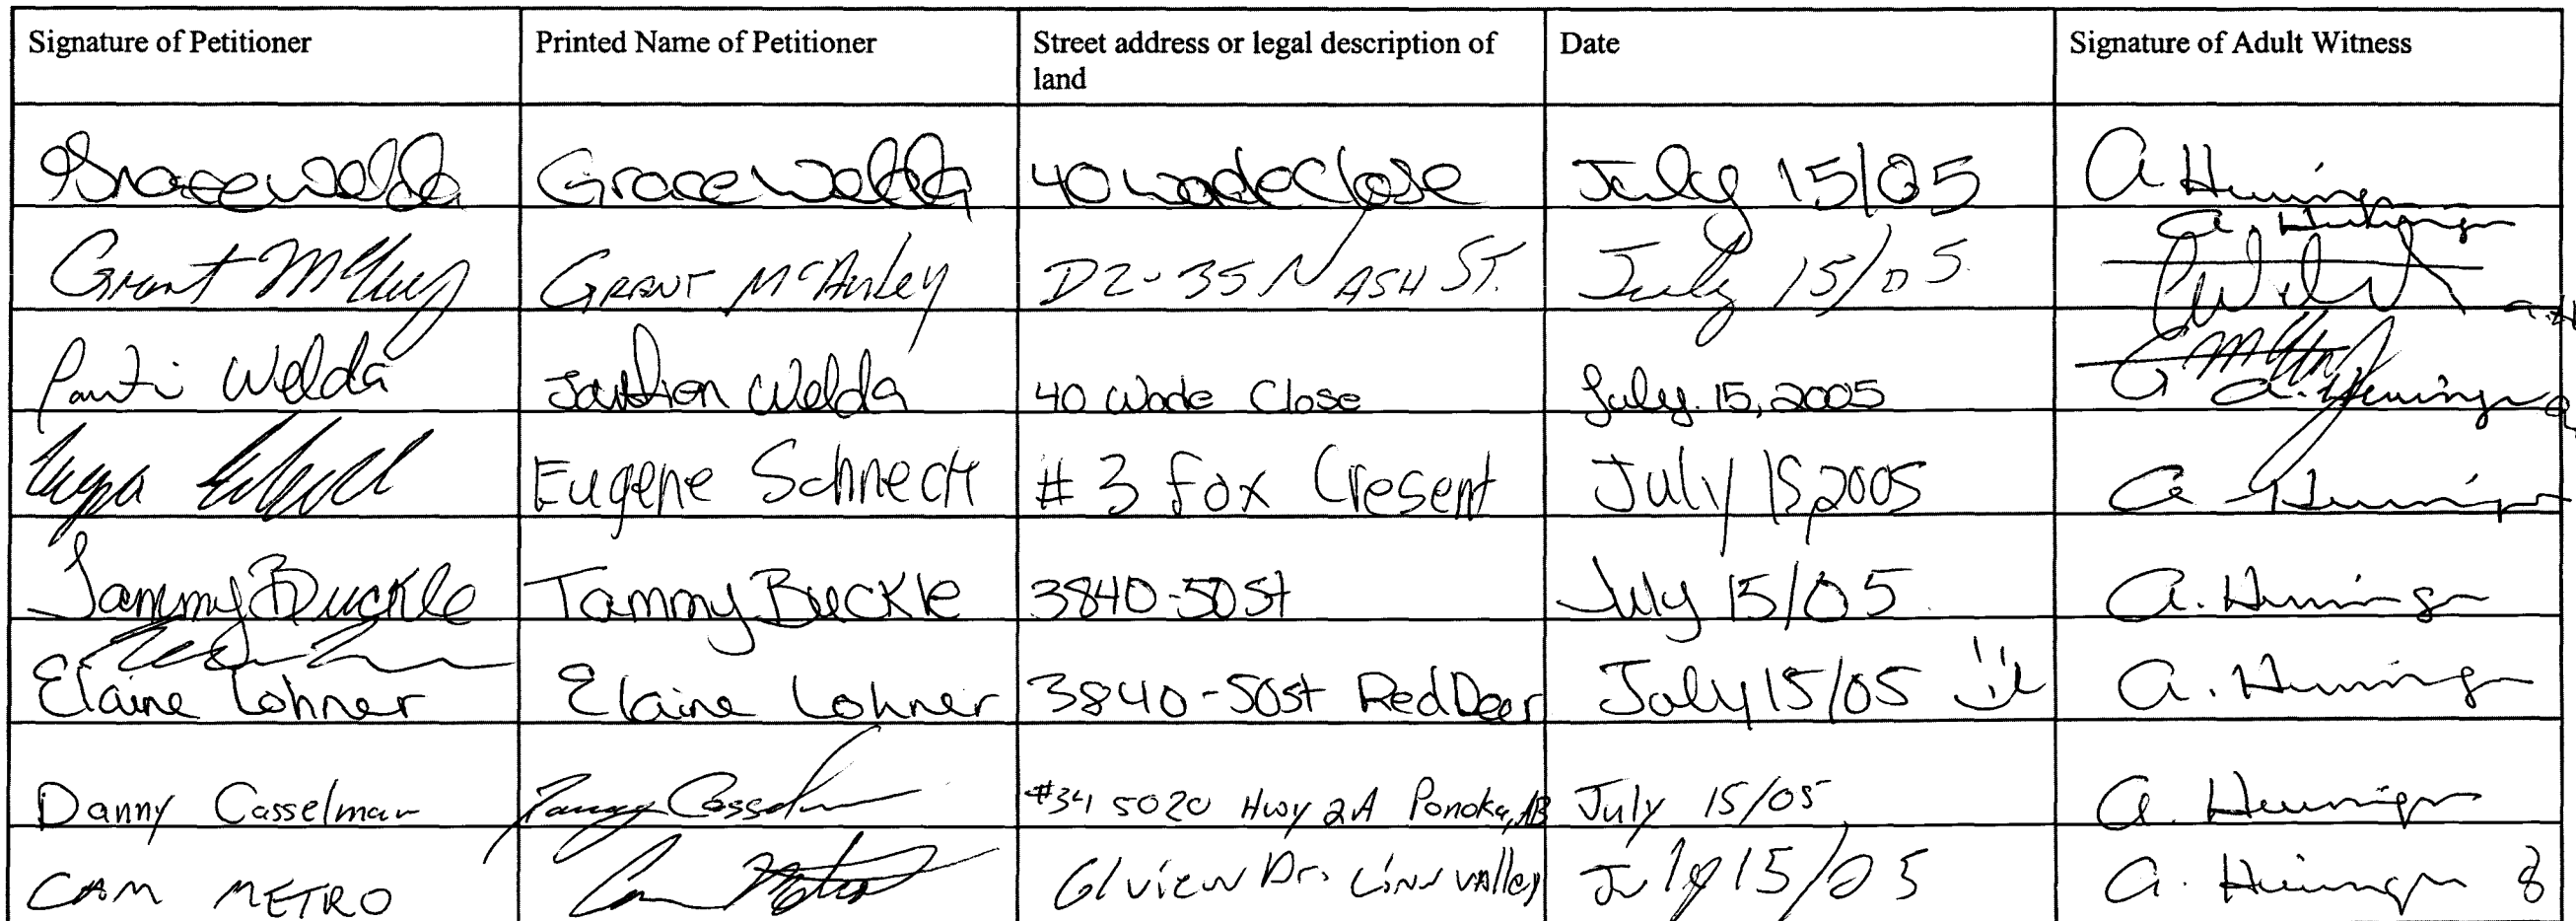 Signature of Petitioner Printed Name of Petitioner Street address or legal description of land Date Signature of Adult Witness
Grace Welda Grace Welda 40 Wade Close July 15/05 A.
Grant McAuley GRANT McAuley D2-35 NASH ST. July 15/05
Welda Welda 40 Wade Close July. 15, 2005
Eugene Schneck #3 Fox Cresent July 15, 2005 A
Tammy Buckle Tammy Buckle 3840-50st July 15/05 A.
Elaine Lohner Elaine Lohner 3840-50st Red Deer July 15/05 A.
Danny Casselman Danny Casselman #34 5020 Hwy 2A Ponoka, AB July 15/05 A.
CAM METRO 61 view Dr. Linn valley July 15/05 A. 8